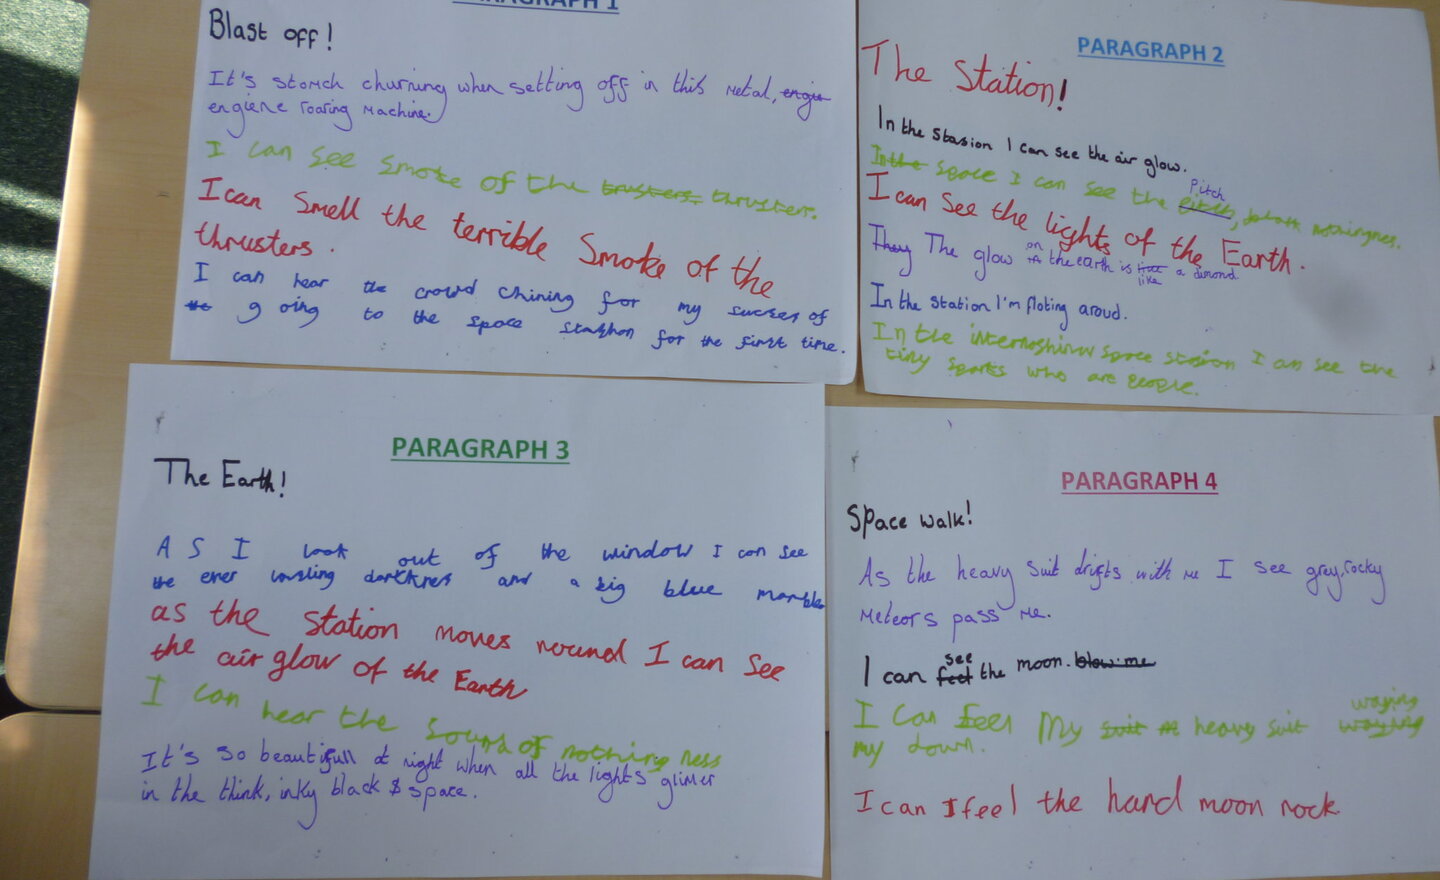 PARAGRAPH 1
Blast off!
It's stomch churning when setting off in this metal, engin
engiene roaring machine.
I can see smoke of the trusters. thrusters.
I can smell the terrible smoke of the
thrusters.
I can hear the crowd chining for my sucses of
the going to the space stashon for the first time.
PARAGRAPH 2
The Station!
In the stasion I can see the air glow.
Pitch
In the space I can see the nothingnes.
I can see the lights of the Earth.
on
They The glow the earth is a dimond
like
In the station I'm floting aroud.
In the space stasion I can see the
tiny who are people.
PARAGRAPH 3
The Earth!
AS I look out of the window I can see
the ever darkness and a big blue marble
as the station moves round I can see
the air glow of the Earth
I can hear the sound of nothing ness
It's so beautifull at night when all the lights glimer
in the think, inky black & space.
PARAGRAPH 4
Space walk!
As the heavy suit drifts with me I see grey, rocky
meteors pass me.
see
I can feel the moon. blow me
waying
I can feel My suit heavy suit waying
my down.
I can feel the hard moon rock